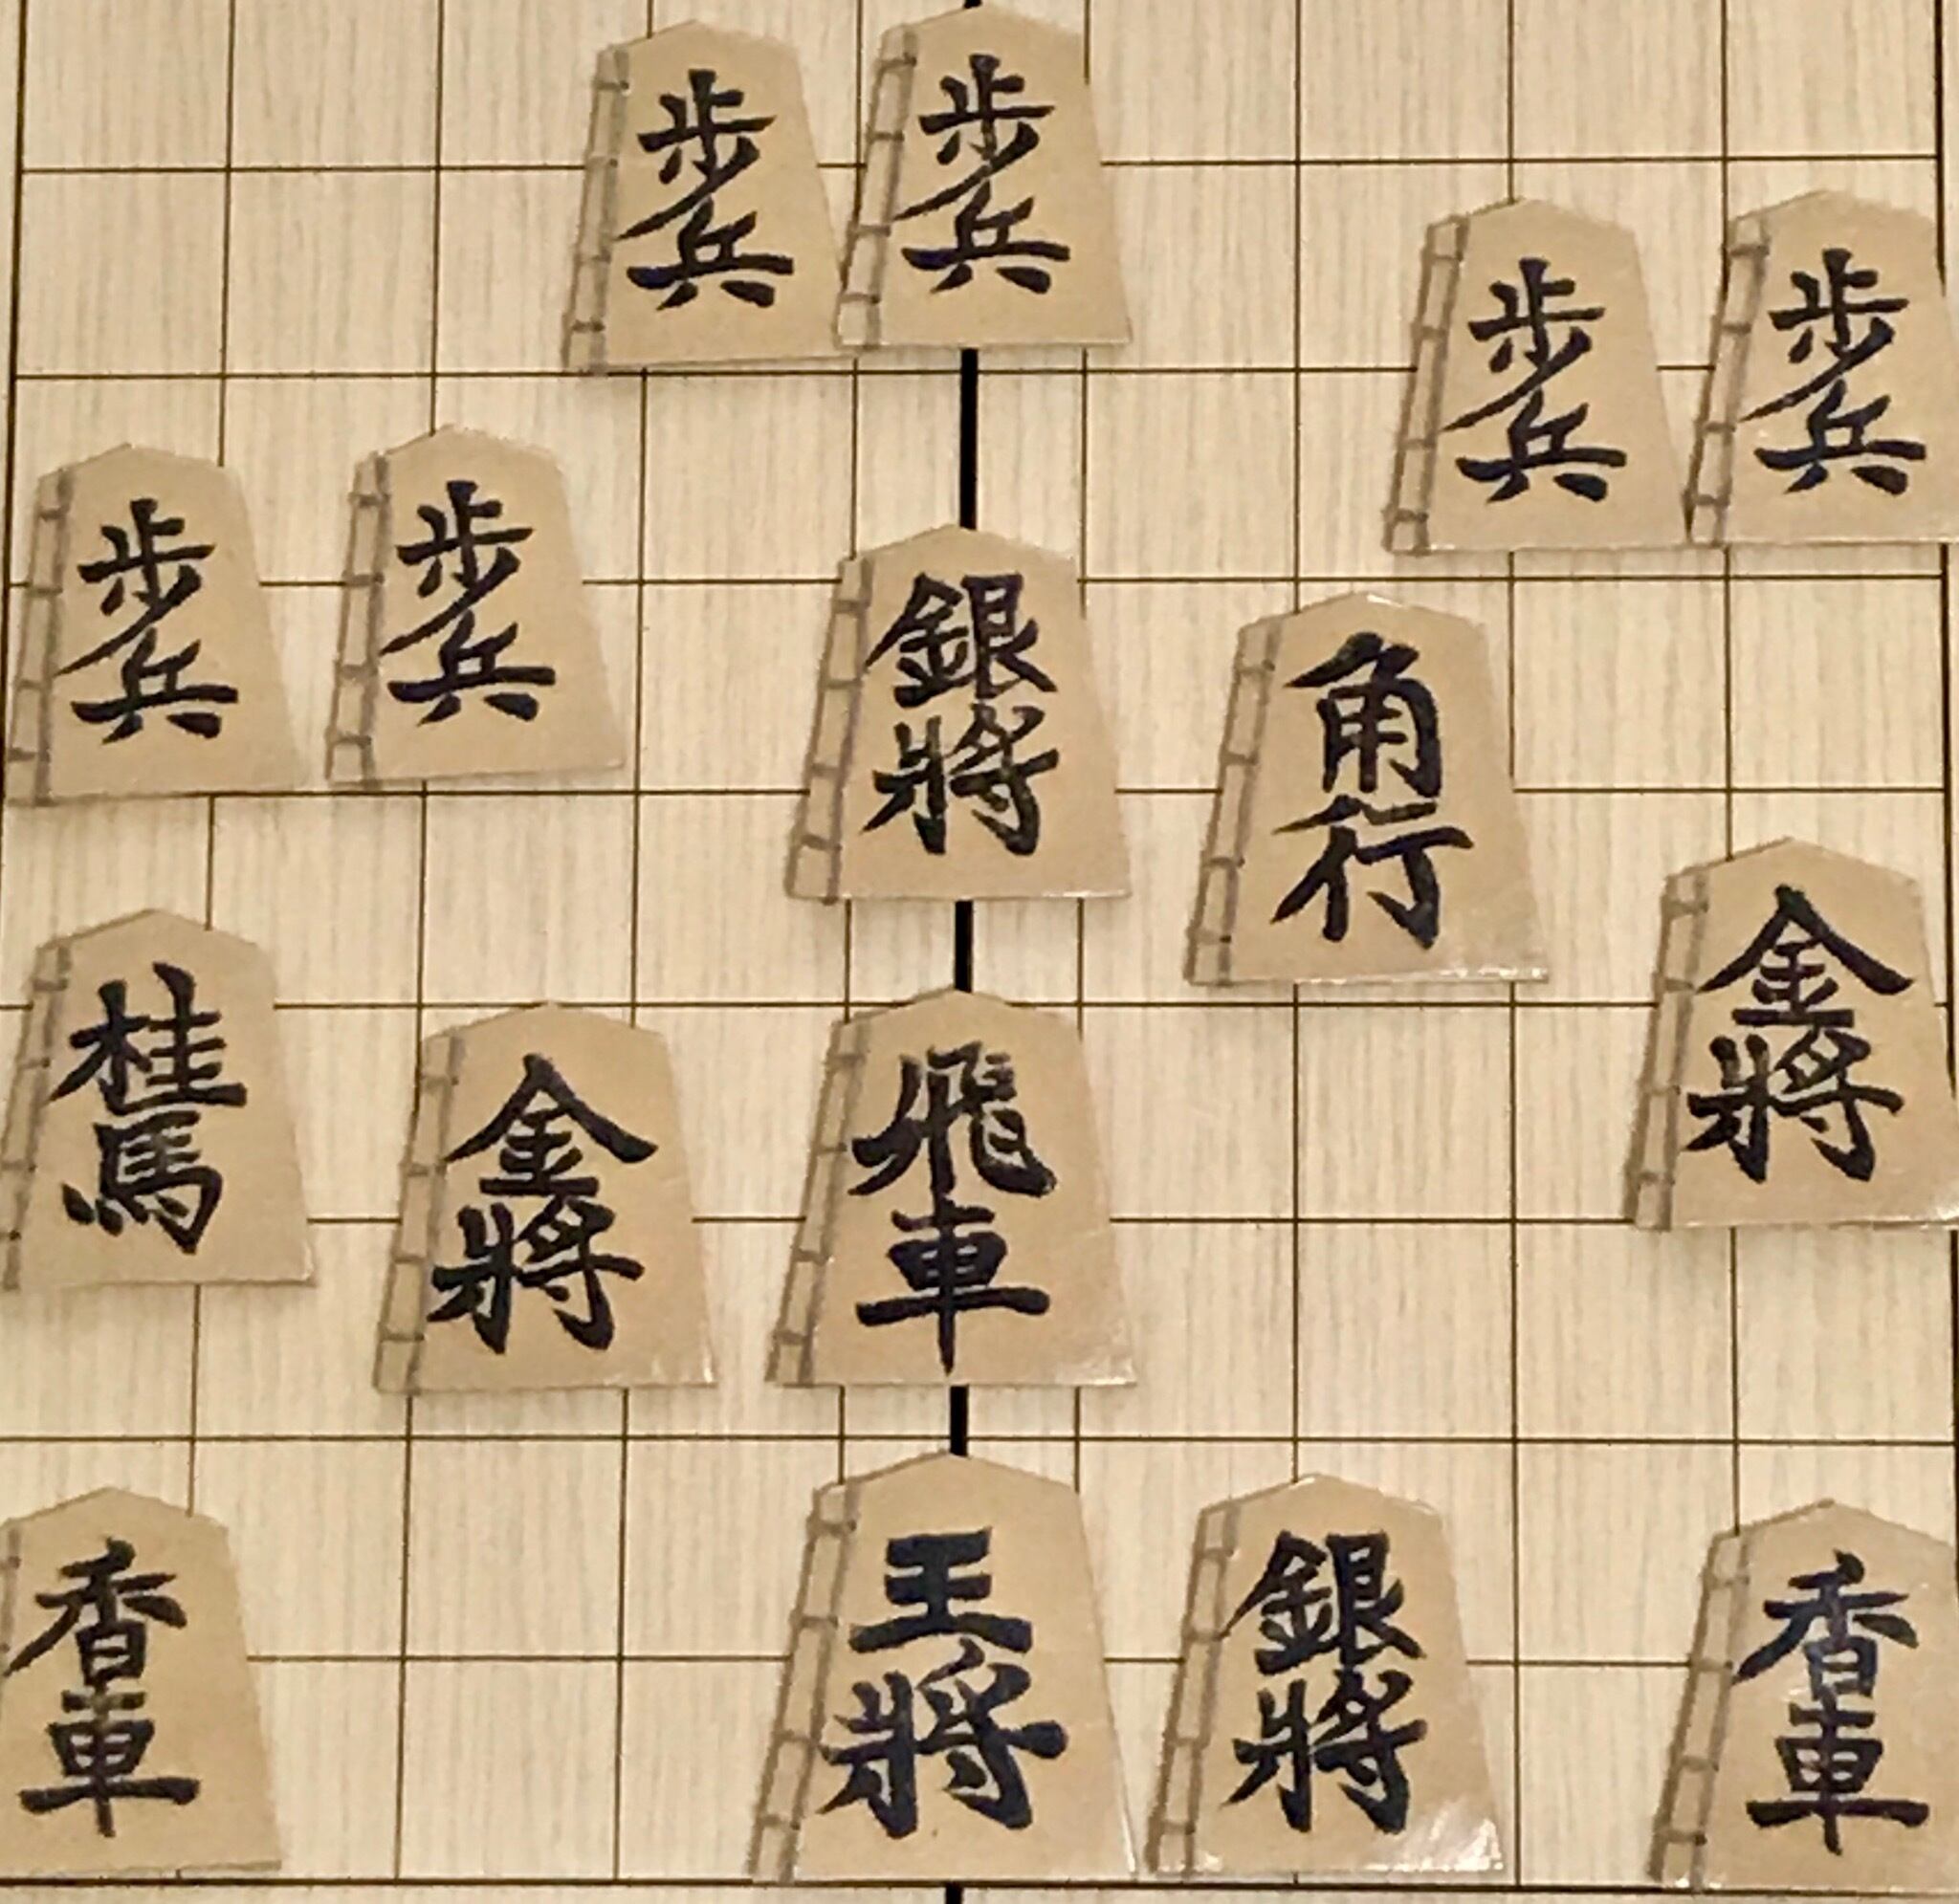 歩兵
歩兵
歩兵
歩兵
歩兵
歩兵
銀將
角行
桂馬
金將
飛車
金將
香車
王將
銀將
香車